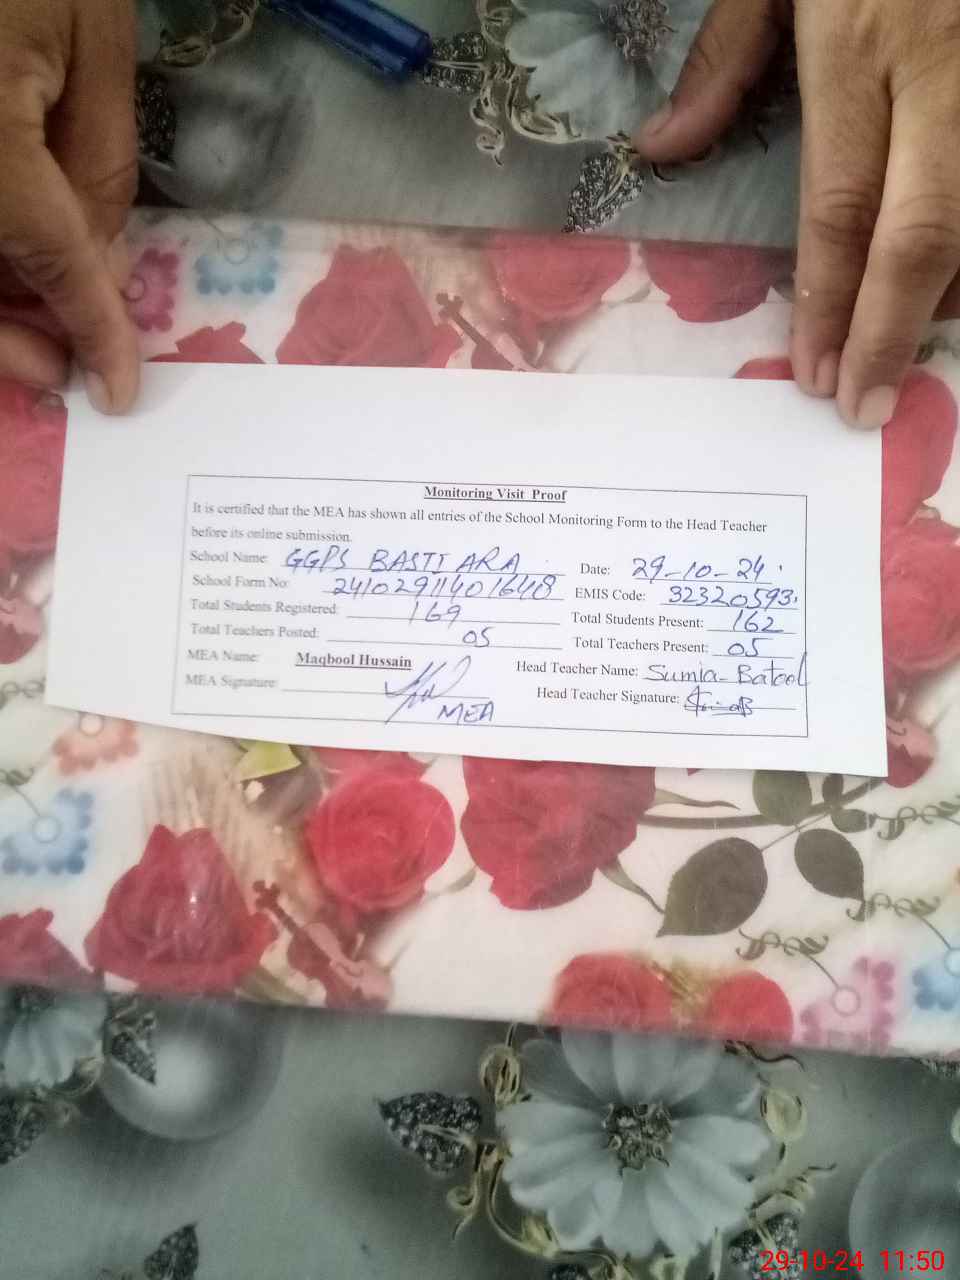 Monitoring Visit Proof
It is certified that the MEA has shown all entries of the School Monitoring Form to the Head Teacher
before its online submission.
School Name: GGPS BASTI ARA Date: 29-10-24
School Form No: 241029114016408 EMIS Code: 32320593
Total Students Registered: 169 Total Students Present: 162
Total Teachers Posted: 05 Total Teachers Present: 05
MEA Name: Maqbool Hussain Head Teacher Name: Sumia-Batool
MEA Signature: Head Teacher Signature:
MEA
29-10-24 11:50